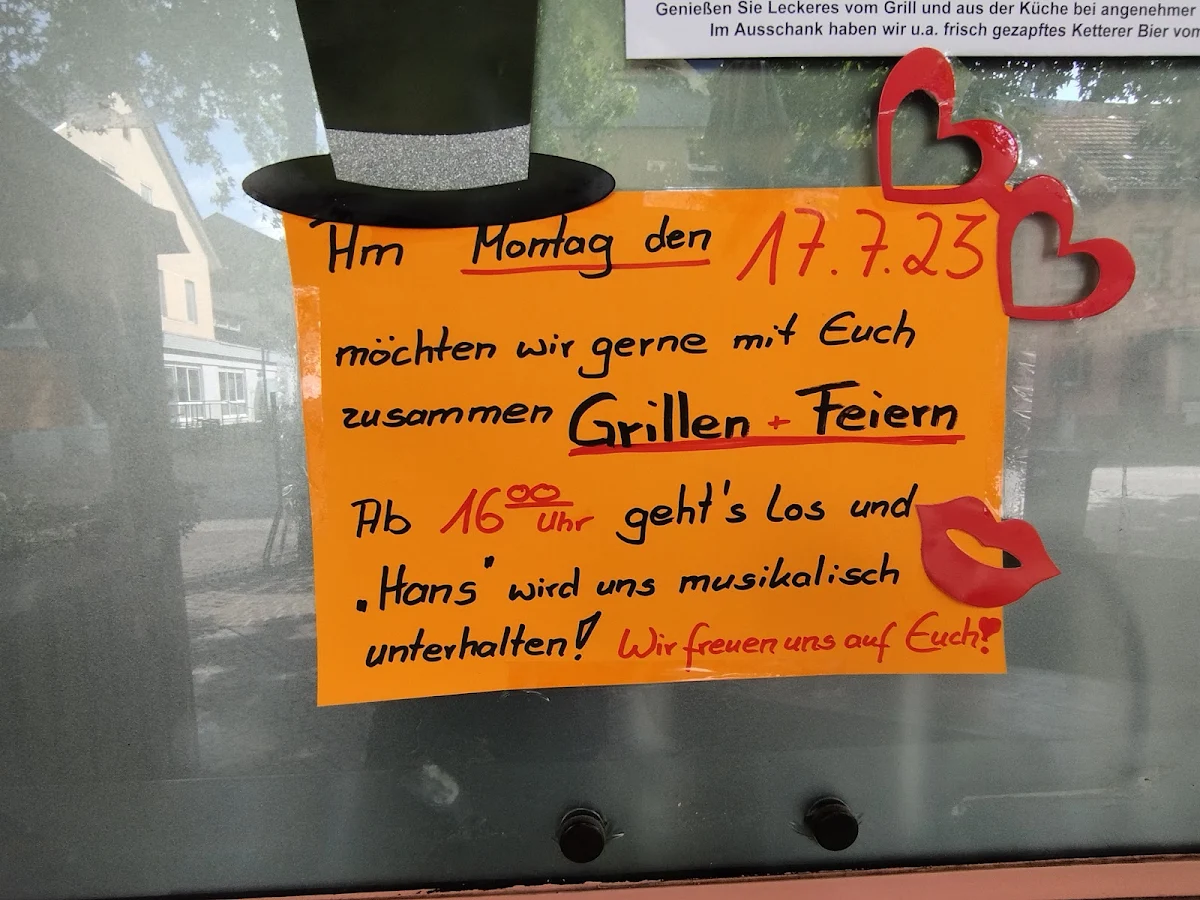 Genießen Sie Leckeres vom Grill und aus der Küche bei angenehmer
Im Ausschank haben wir u.a. frisch gezapftes Ketterer Bier vom
Am Montag den 17.7.23
möchten wir gerne mit Euch
zusammen Grillen + Feiern
Ab 16⁰⁰ Uhr geht's los und
„Hans" wird uns musikalisch
unterhalten! Wir freuen uns auf Euch!